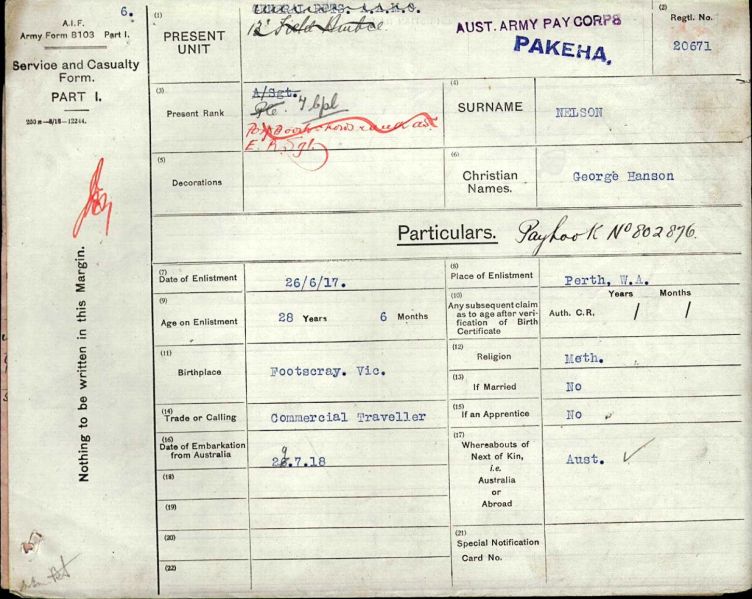 6.
A.I.F.
Army Form B103 Part I.
Service and Casualty
Form.
PART I.
Nothing to be written in this Margin.
(1)
PRESENT
UNIT
12 Field Amblce.
AUST. ARMY PAY CORPS
PAKEHA,
(2)
Regtl. No.
20671
(3)
Present Rank
A/Sgt.
Pte.
(4)
SURNAME
NELSON
(5)
Decorations
(6)
Christian
Names.
George Hanson
Particulars.
Paybook No 802876.
(7)
Date of Enlistment
26/6/17.
(8)
Place of Enlistment
Perth, W.A.
(9)
Age on Enlistment
28 Years 6 Months
(10)
Any subsequent claim
as to age after veri-
fication of Birth
Certificate
Years Months
Auth. C.R. / /
(11)
Birthplace
Footscray. Vic.
(12)
Religion
Meth.
(13)
If Married
No
(14)
Trade or Calling
Commercial Traveller
(15)
If an Apprentice
No
(16)
Date of Embarkation
from Australia
29.7.18
(17)
Whereabouts of
Next of Kin,
i.e.
Australia
or
Abroad
Aust.
(18)
(19)
(20)
(21)
Special Notification
Card No.
(22)